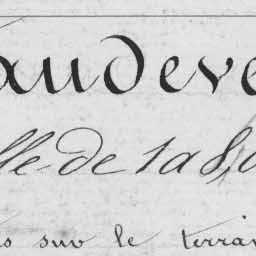 audeve
lle de 1 a 8,0
s sur le terrai